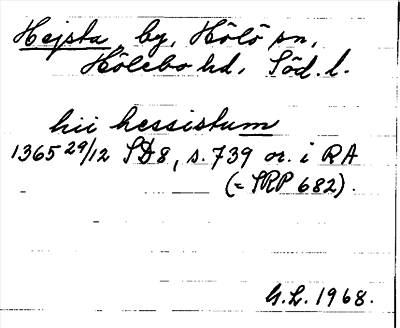 Hejsta by, Hölö sn,
Hölebo hd, Söd. l.
hii hessistum
1365 29/12 SD8, s. 739 or. i RA
(= SRP 682).
G.L. 1968.